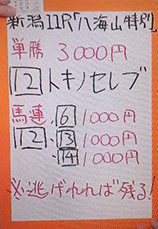 新潟11R「八海山特別」
単勝 3000円
12 トキノセレブ
馬連 6 1000円
12 - 13 1000円
14 1000円
※逃げれれば残る!